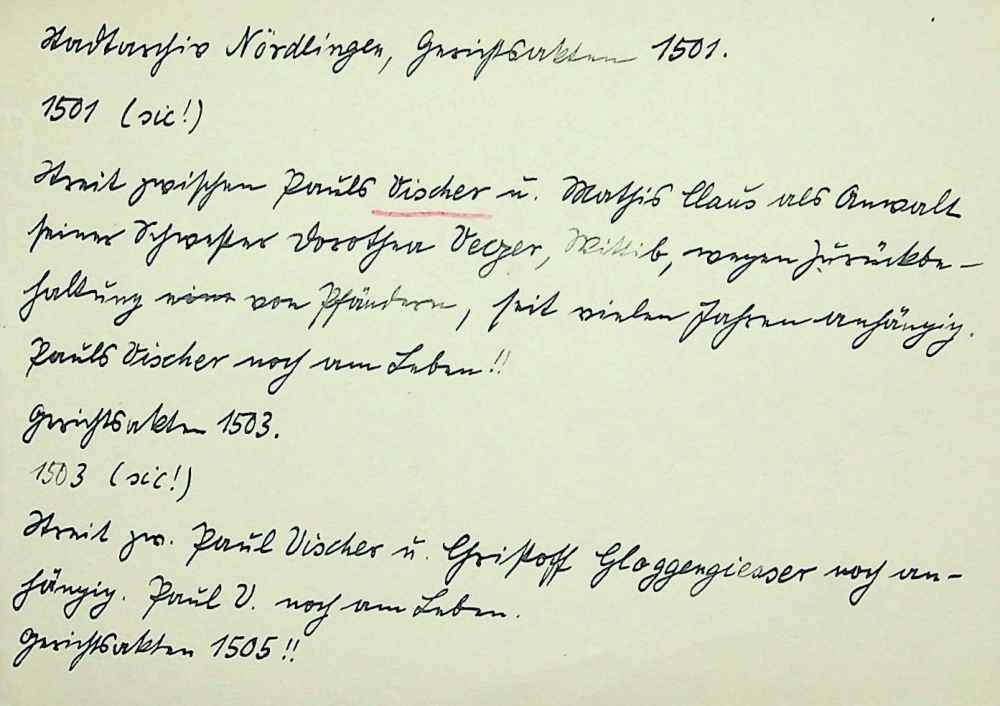 Stadtarchiv Nördlingen, Gerichtsakten 1501.
1501 (sic!)
Streit zwischen Pauls Vischer u. Mathis Claus als Anwalt
seiner Schwester Dorothea Vezer, Wittib, wegen Zurückbe-
haltung von Pfändern, seit vielen Jahren anhängig.
Pauls Vischer noch am Leben!!
Gerichtsakten 1503.
1503 (sic!)
Streit zw. Paul Vischer u. Christoff Gloggengiesser noch an-
hängig. Paul V. noch am Leben.
Gerichtsakten 1505!!